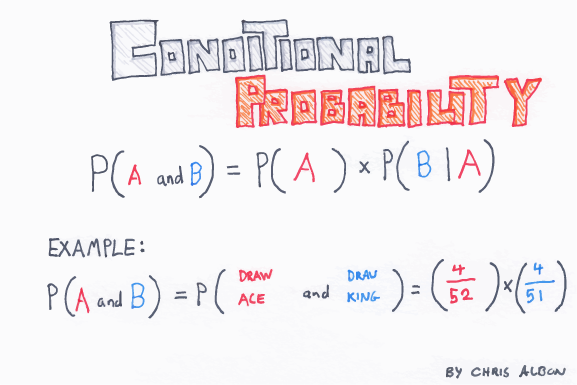 CONDITIONAL
PROBABILITY
P(A and B) = P(A) × P(B|A)
EXAMPLE:
P(A and B) = P(DRAW ACE and DRAW KING) = (4/52) × (4/51)
BY CHRIS ALBON